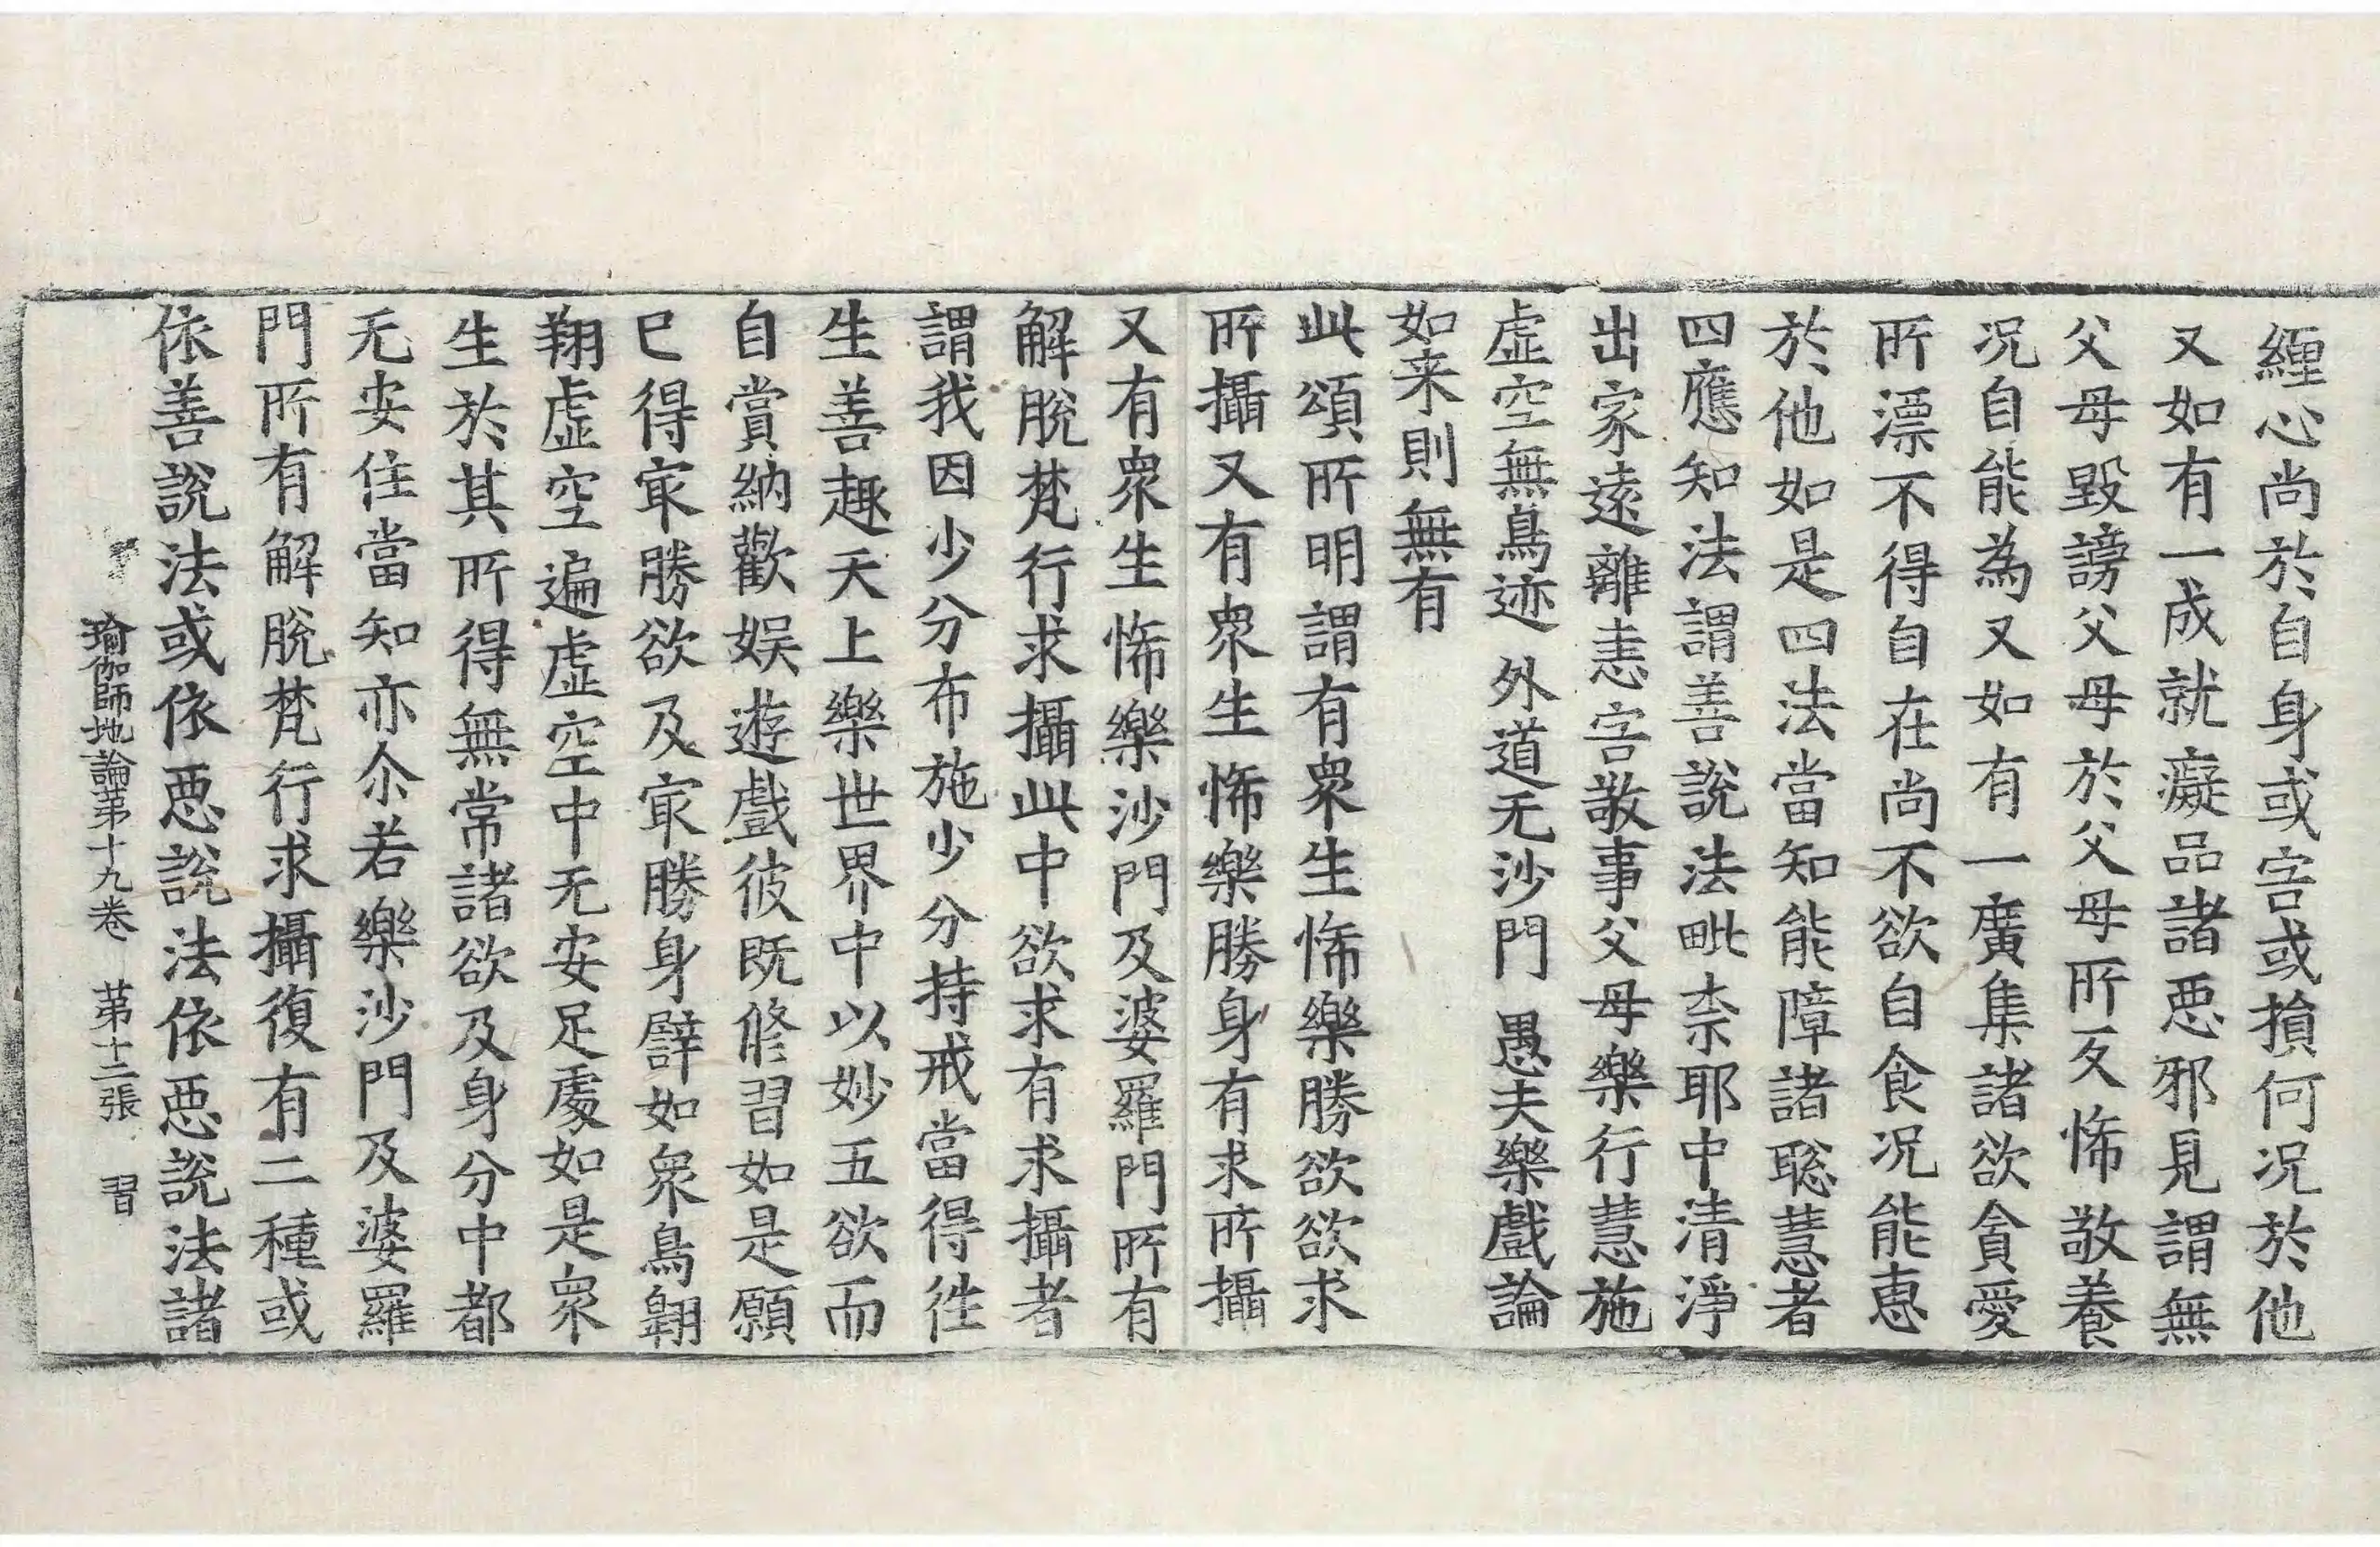 纏心尚於自身或害或損何况於他
又如有一成就癡品諸惡邪見謂無
父母毀謗父母於父母所反悕敬養
况自能為又如有一廣集諸欲貪愛
所漂不得自在尚不欲自食况能恵
於他如是四法當知能障諸聡慧者
四應知法謂善說法毗柰耶中清淨
出家遠離恚害敬事父母樂行慧施
虛空無鳥迹 外道无沙門 愚夫樂戲論
如来則無有
此頌所明謂有衆生悕樂勝欲欲求
所攝又有衆生悕樂勝身有求所攝
又有衆生悕樂沙門及婆羅門所有
解脫梵行求攝此中欲求有求攝者
謂我因少分布施少分持戒當得往
生善趣天上樂世界中以妙五欲而
自賞納歡娱遊戲彼既修習如是願
已得㝡勝欲及㝡勝身譬如衆鳥翺
翔虛空遍虛空中无安足處如是衆
生於其所得無常諸欲及身分中都
无安住當知亦尒若樂沙門及婆羅
門所有解脫梵行求攝復有二種或
依善說法或依惡說法依惡說法諸
瑜伽師地論第十九卷 第十二張 習